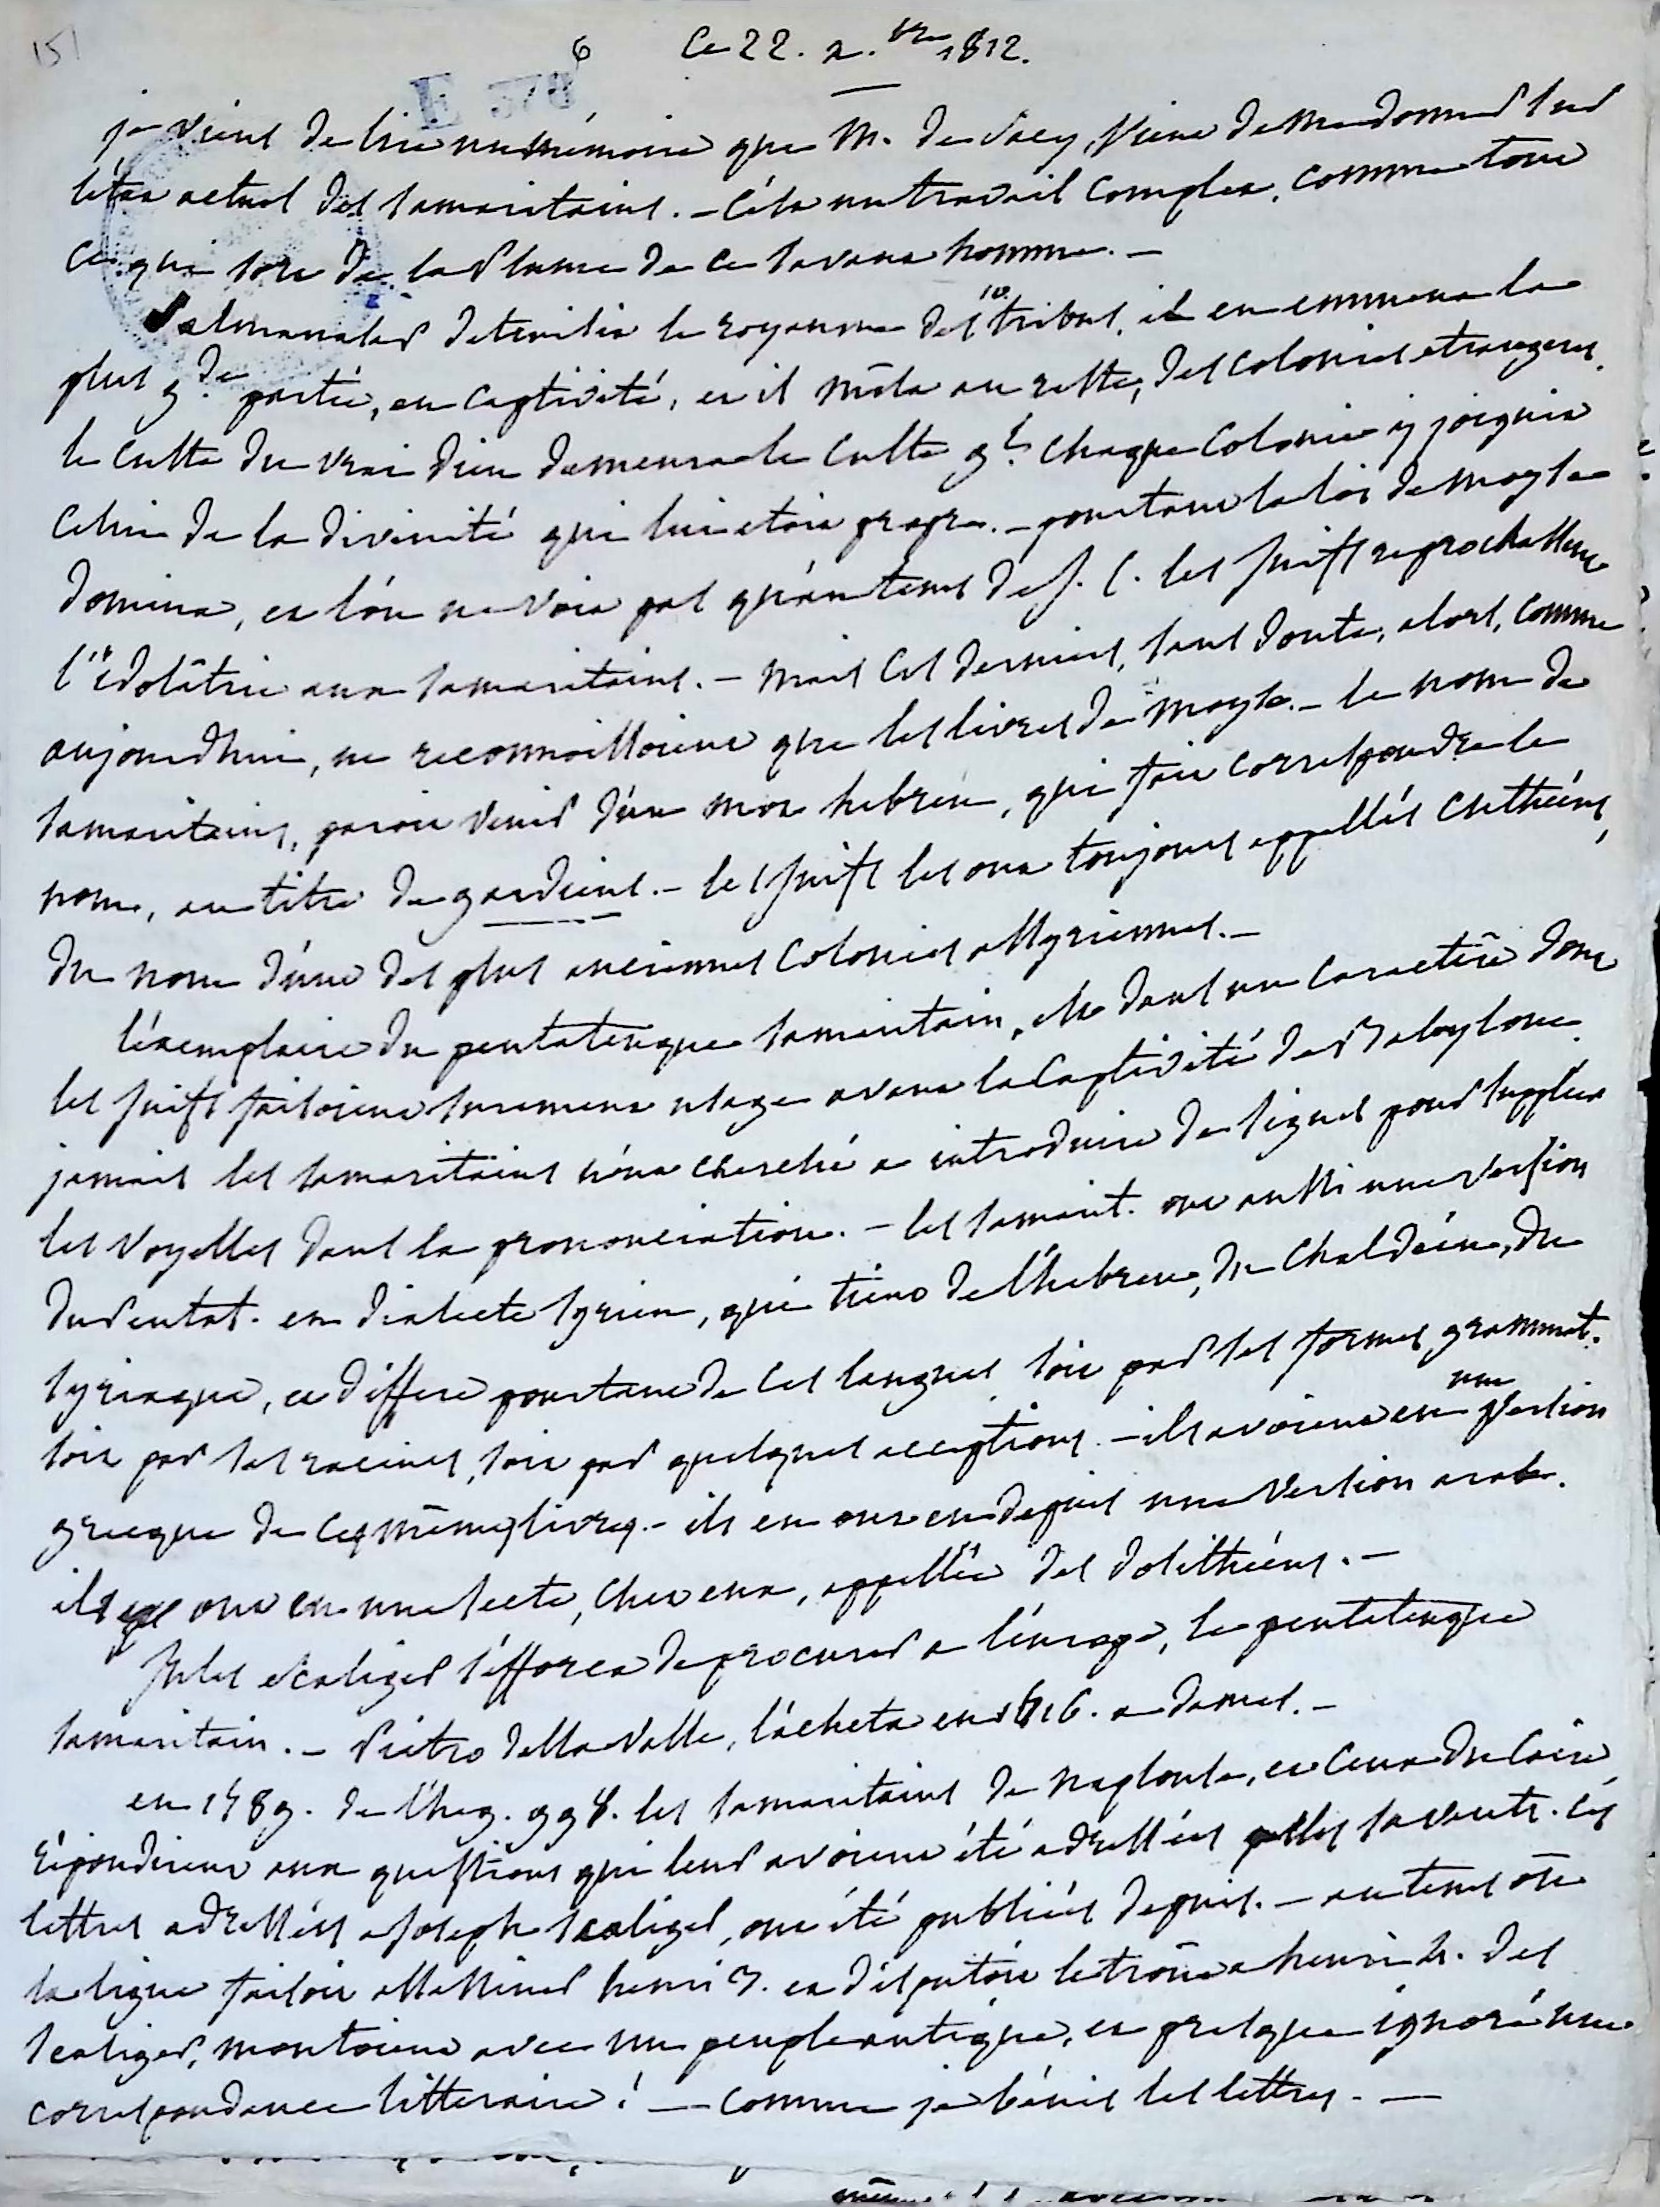 151
6 Ce 22. x.bre 1812.
E 378
je viens de lire un mémoire que M. de Sacy, vient de me donner sur
l'état actuel des samaritains. - c'est un travail complet, comme tout
ce qui sort de la plume de ce savant homme. -
Salmanasar detruisit le royaume des 10. tribus, il en emmena la
plus gde partie, en captivité, et il mêla au reste, des colonies etrangeres.
le culte du vrai dieu demeura le culte gl. chaque colonie y joignit
celui de la divinité qui lui etoit propre. - pourtant la loi de moyse
domina, et l'on ne voit pas qu'au tems de J. C. les juifs reprochassent
l'idolâtrie aux samaritains. - mais ces derniers, sans doute, alors, comme
aujourdhui, ne reconnoissoient que les livres de moyse. - le nom de
samaritains, paroit venir d'un mot hebreu, qui fait correspondre le
nom, au titre de gardiens. - les juifs les ont toujours appellés cuthéens,
du nom d'une des plus anciennes colonies assyriennes. -
l'exemplaire du pentateuque samaritain, est dans un caractère dont
les juifs faisoient surement usage avant la captivité de Babylone.
jamais les samaritains n'ont cherché a introduire de signes pour suppléer
les voyelles dans la prononciation. - les samarit. ont aussi une version
du Pentat. en dialecte syrien, qui tient de l'hebreu, du chaldéen, du
syriaque, et differe pourtant de ces langues soit par les formes grammat.
soit par les racines, soit par quelques acceptions. - ils avoient eu une version
grecque de ces mêmes livres. - ils en ont eu depuis une version arabe.
ils ont eu une secte, chez eux, appellée des dosithéens. -
Jules scaliger s'efforça de procurer a l'europe, le pentateuque
samaritain. - Pietro della Valle, l'acheta en 1616. a damas. -
en 1589. de l'heg. 998. les samaritains de naplouse, et ceux du Caire
répondirent aux questions qui leur avoient été adressées par les savants. ces
lettres adressées a Joseph scaliger, ont été publiées depuis. - au tems où
la ligue faisoit assassiner henri 3. et disputoit le trône a henri 4. des
scaliger, mentoient avec un peuple antique, et presque ignoré une
correspondance litteraire! — comme je bénis les lettres. —